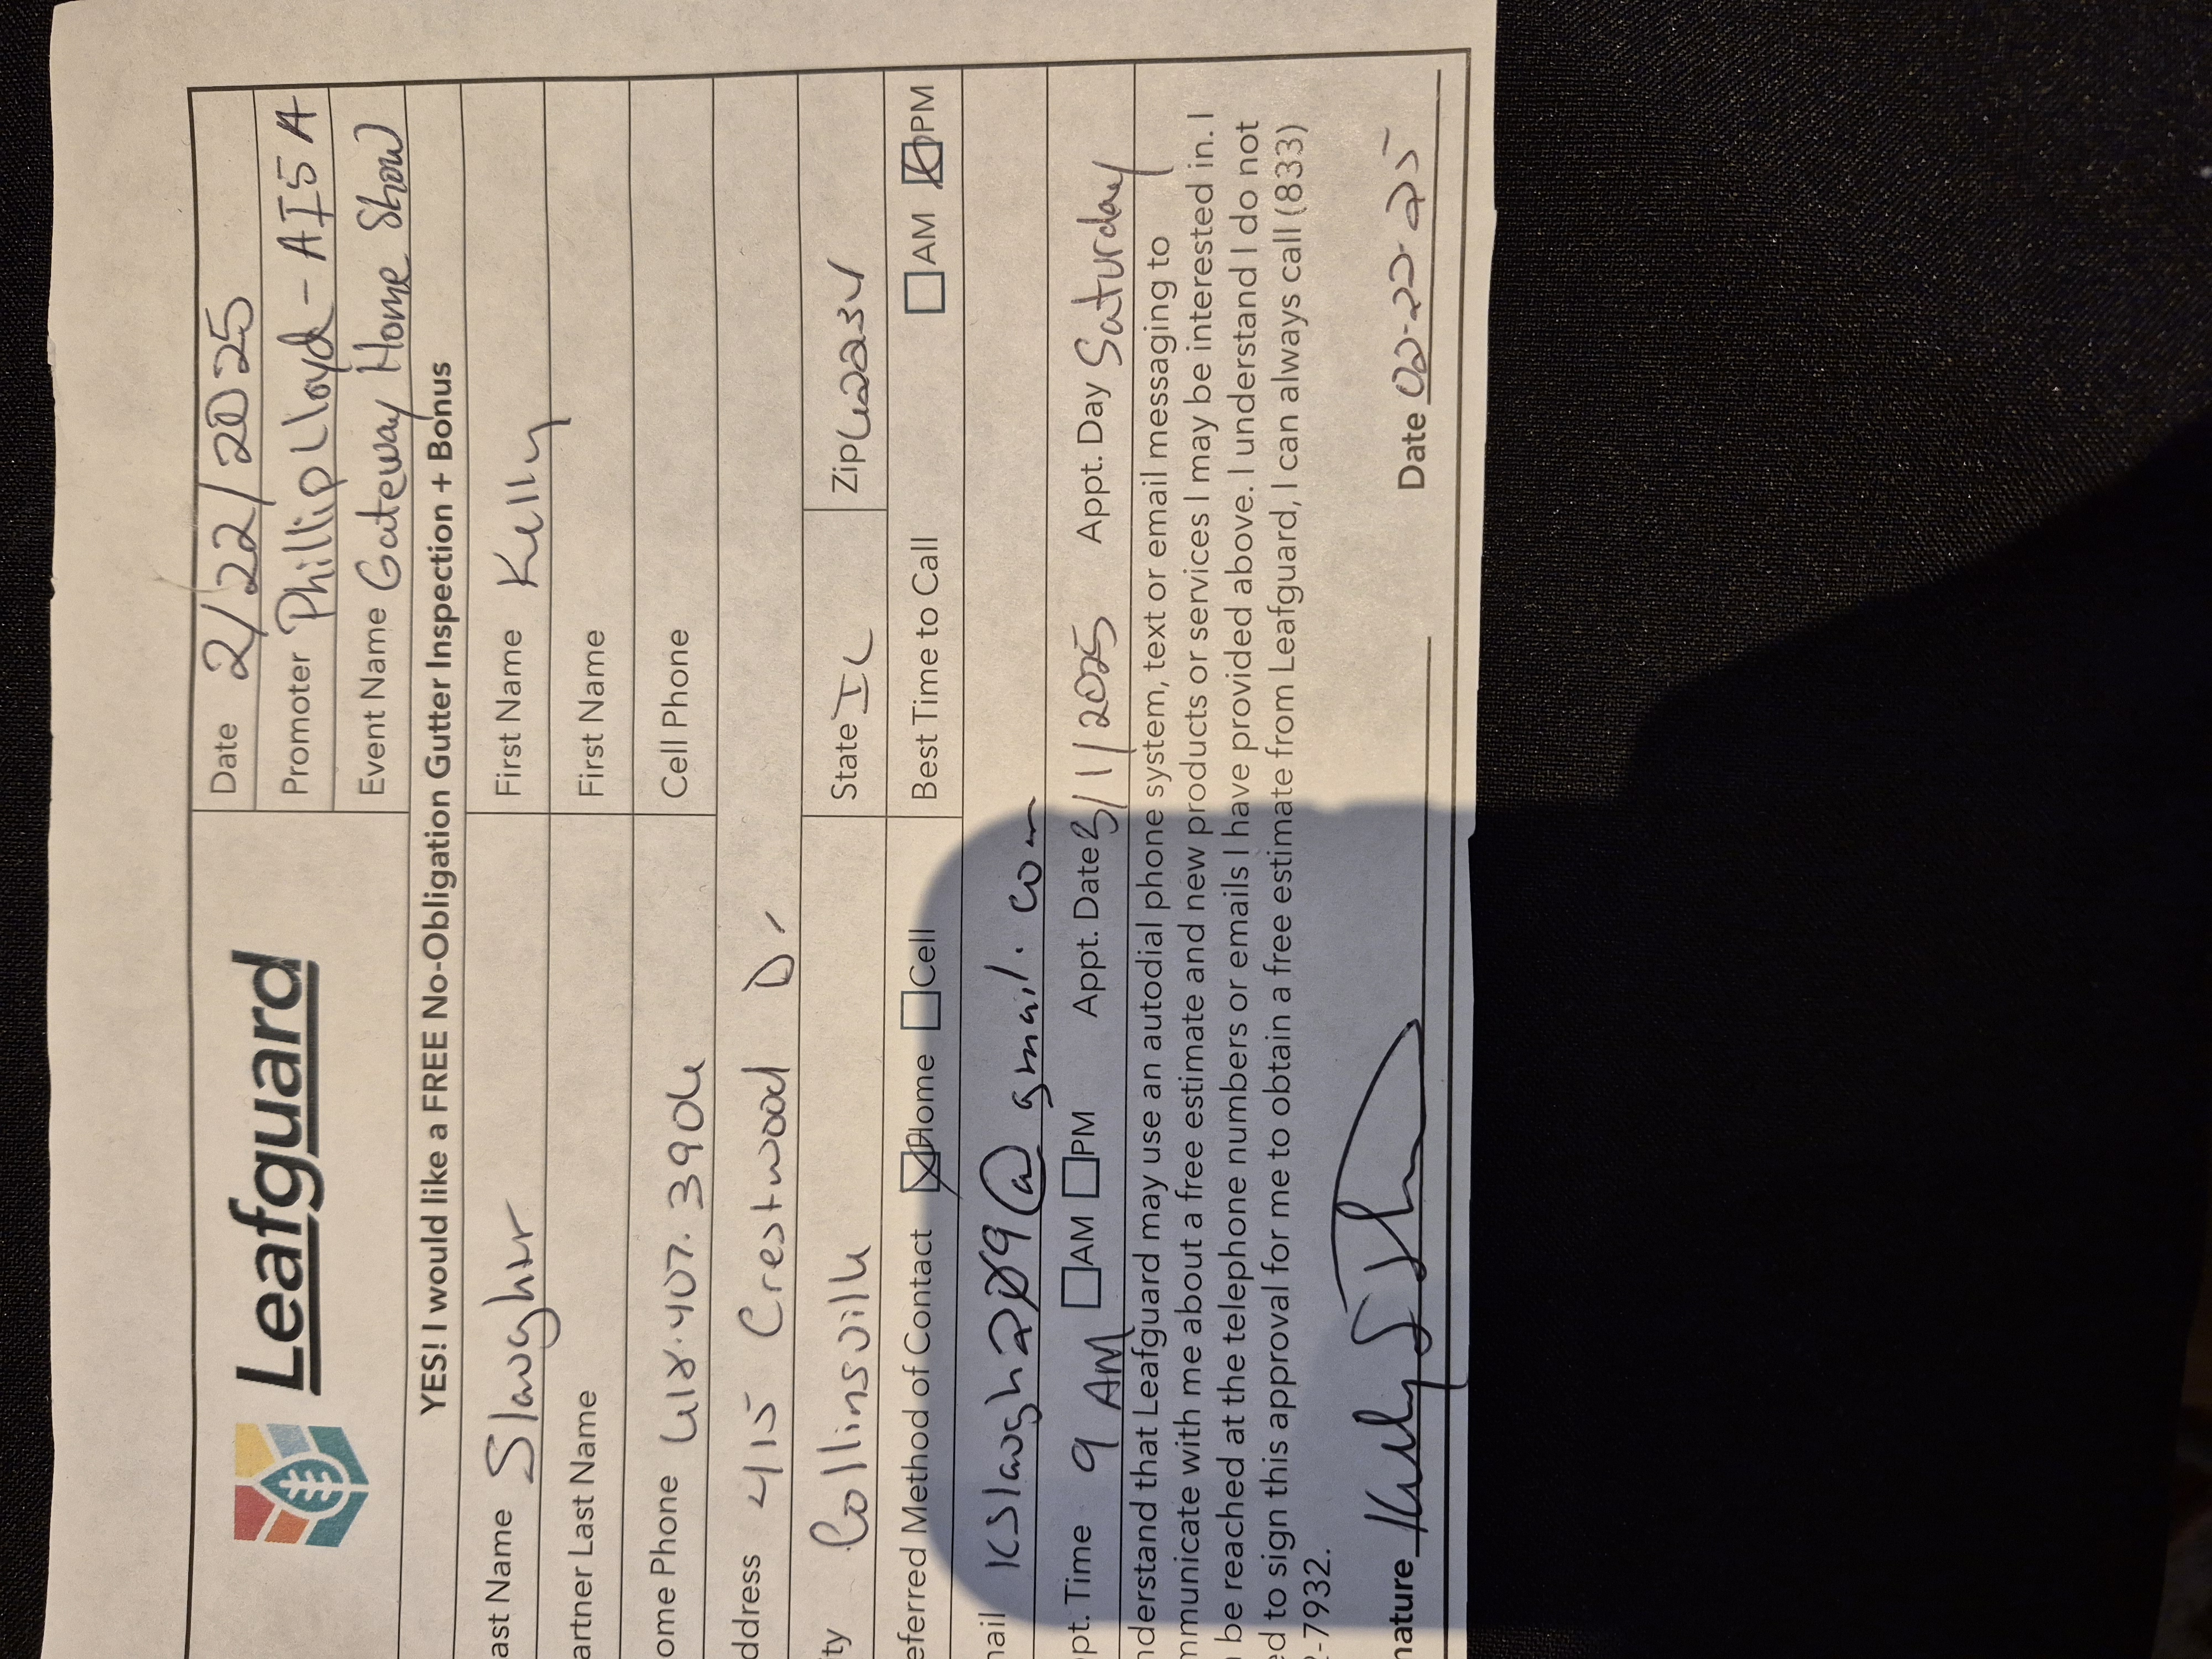 Leafguard
Date 2/22/2025
Promoter Phillip Lloyd - AI5A
Event Name Gateway Home Show
YES! I would like a FREE No-Obligation Gutter Inspection + Bonus
ast Name Slaughter
First Name Kelly
artner Last Name
First Name
ome Phone 618.407.3906
Cell Phone
ddress 415 Crestwood Dr
ty Collinsville
State IL
Zip 62234
eferred Method of Contact Home Cell
Best Time to Call AM PM
ail kslaugh209@gmail.com
pt. Time 9 AM AM PM Appt. Date 3/1/2025 Appt. Day Saturday
nderstand that Leafguard may use an autodial phone system, text or email messaging to
mmunicate with me about a free estimate and new products or services I may be interested in. I
be reached at the telephone numbers or emails I have provided above. I understand I do not
ed to sign this approval for me to obtain a free estimate from Leafguard, I can always call (833)
-7932.
nature Kelly
Date 02-22-25